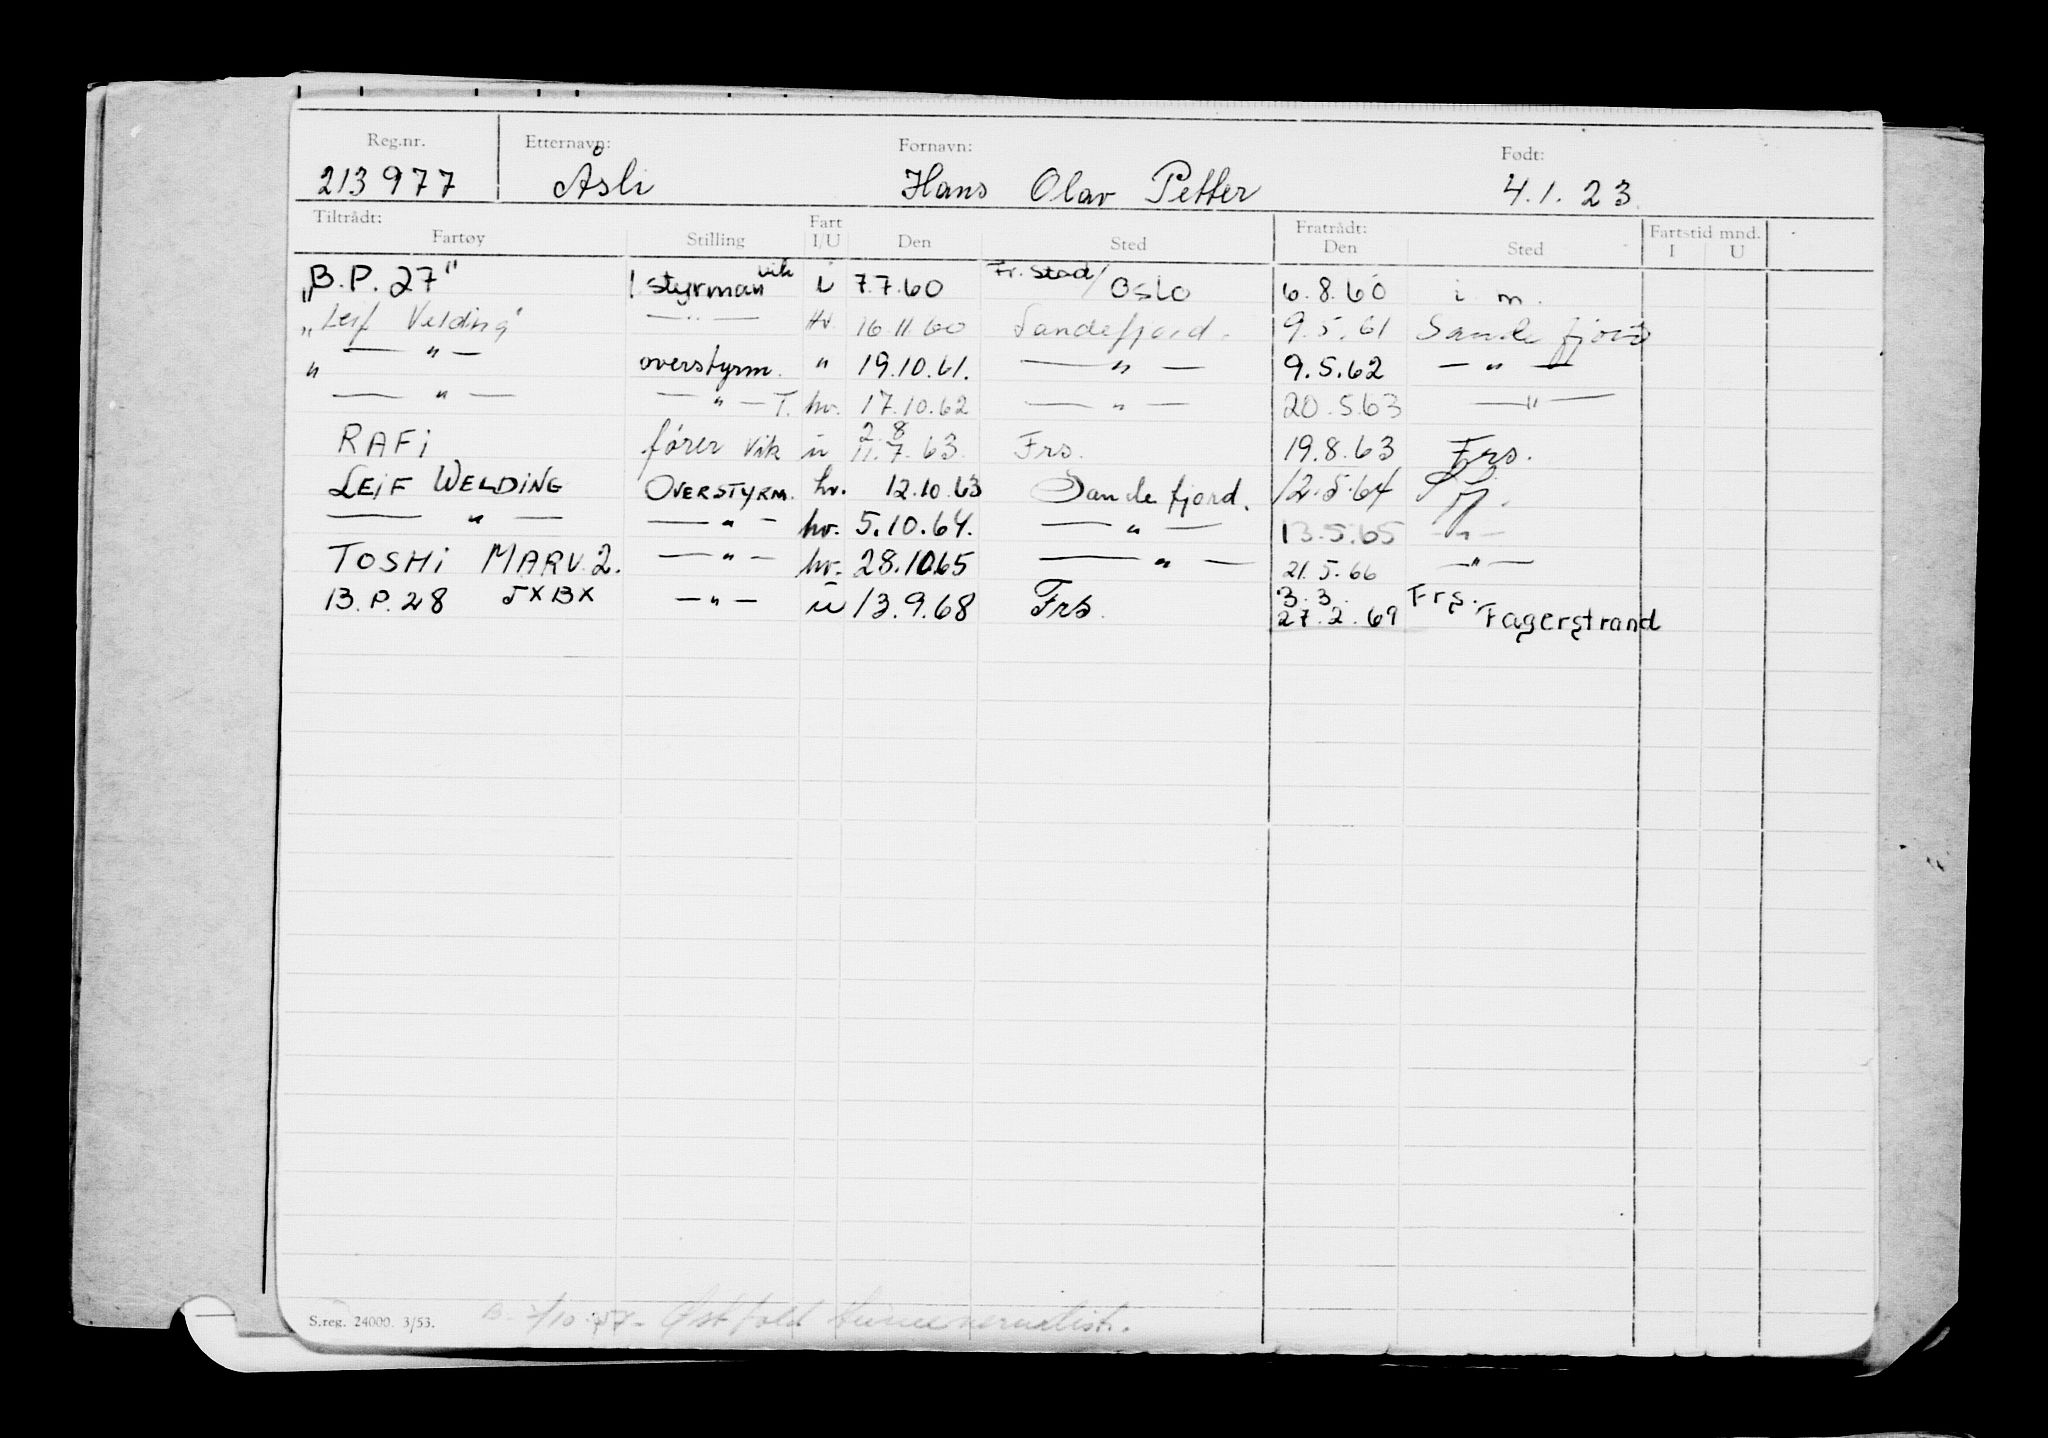 Reg.nr. Etternavn: Fornavn: Født:
213977 Åsli Hans Olav Petter 4.1.23
Tiltrådt: Fart Fratrådt: Fartstid mnd.
Fartøy Stilling I/U Den Sted Den Sted I U
"B.P. 27" 1 styrman vik i 7.7.60 Fr. stad/Oslo 6.8.60 i m.
"Leif Velding" —"— Hv. 16.11.60 Sandefjord. 9.5.61 Sandefjord
" —"— overstyrm. " 19.10.61. —"— 9.5.62 —"—
—"— —"— T. hv. 17.10.62 —"— 20.5.63 —"—
RAFI fører vik u 2.8 11.7.63. Frs. 19.8.63 Frs.
LEIF WELDING OVERSTYRM. hv. 12.10.63 Sandefjord. 12.5.64
—"— —"— hv. 5.10.64. —"— 13.5.65 —"—
TOSHI MARU 2. —"— hv. 28.10.65 —"— 21.5.66 —"—
B.P. 28 JXBX —"— u 13.9.68 Frs. 3.3. 27.2.69 Frs. Fagerstrand
S.reg. 24000. 3/53. Østfold